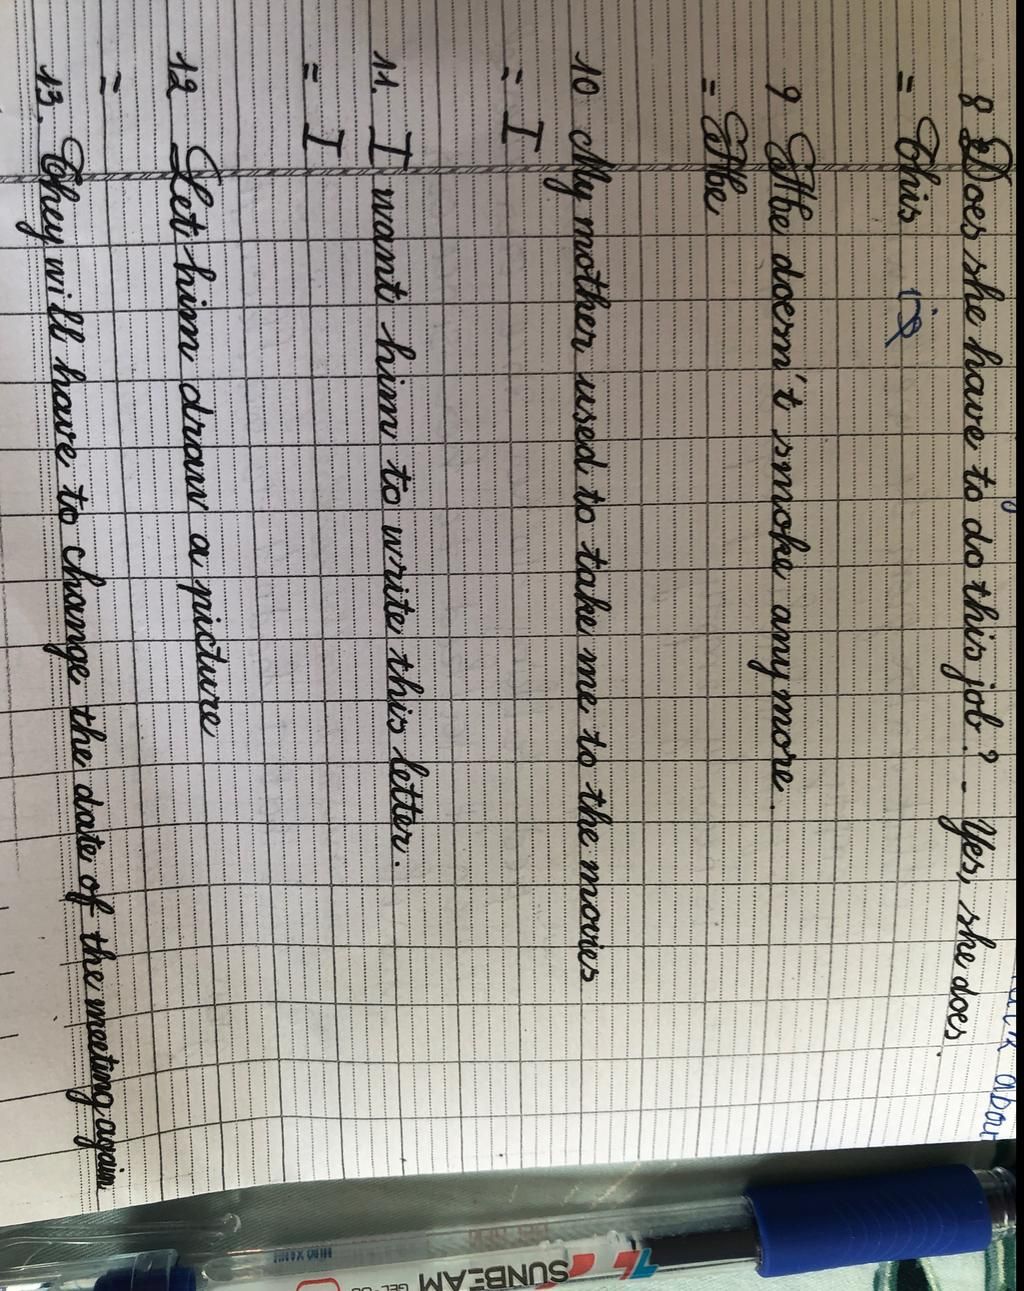 8 Does she have to do this job? - Yes, she does.
= This is
9 The doesn't smoke any more.
= The
10 My mother used to take me to the movies
= I
11. I want him to write this letter.
= I
12 Let him draw a picture
=
13. They will have to change the date of the meeting again
SUNBEAM